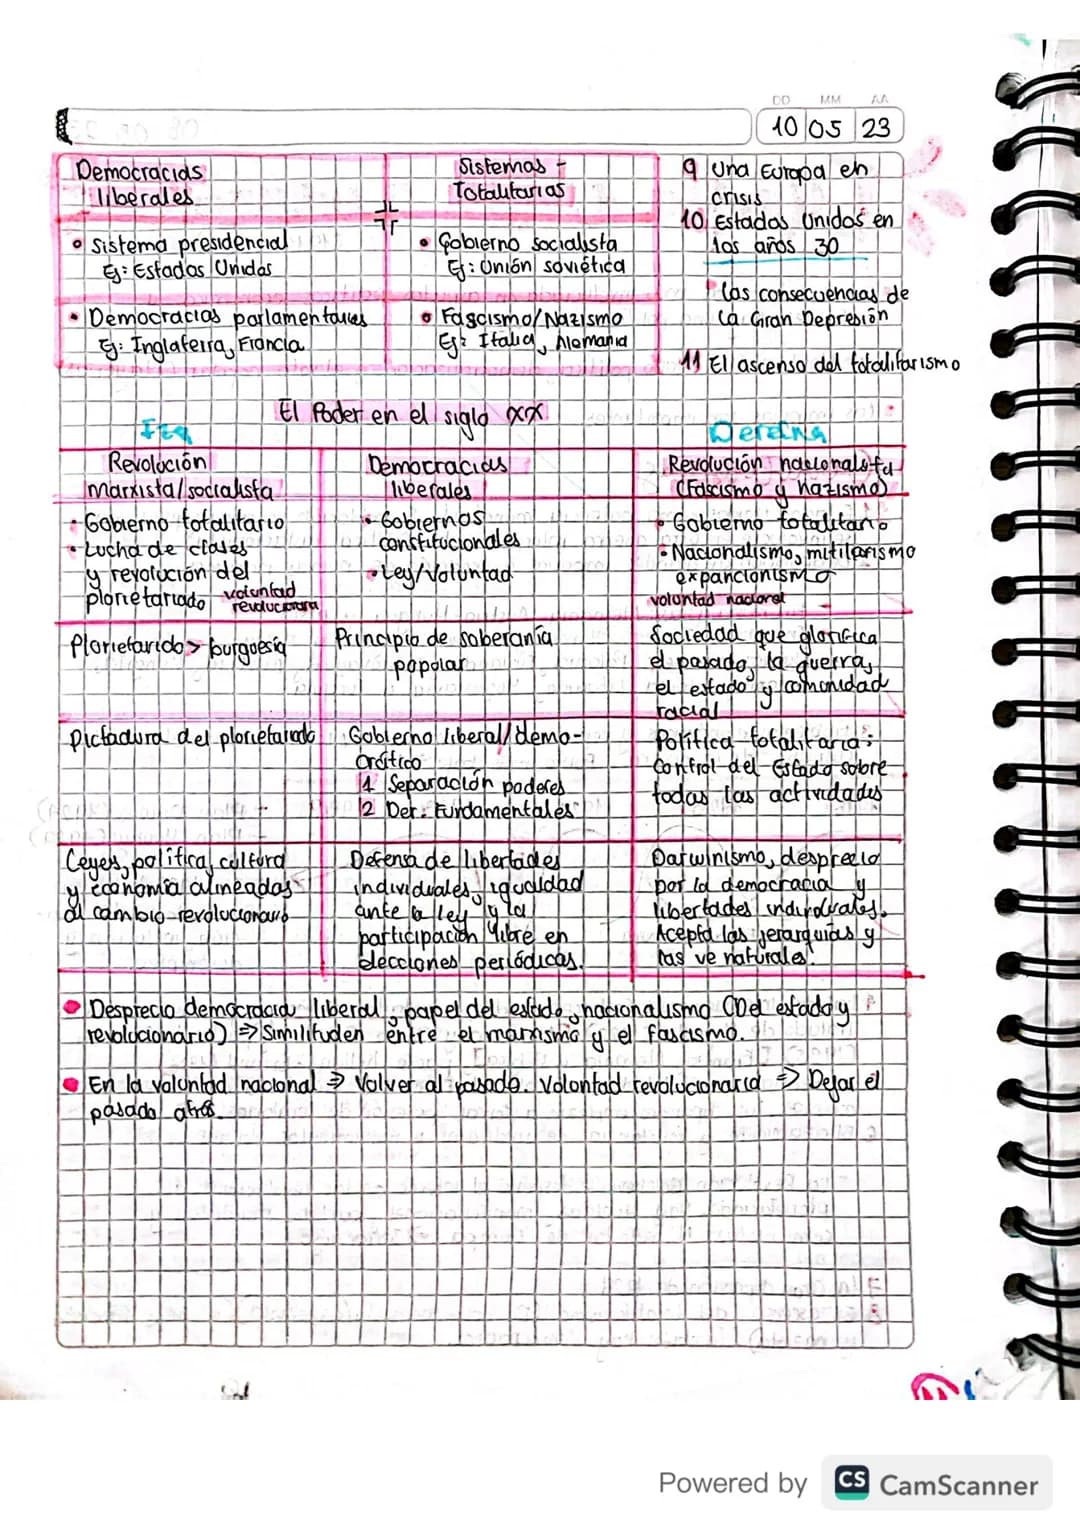 DD MM AA
10 05 23
Democracias
liberales
Sistemas
Totalitarias
• Sistema presidencial
Ej: Estados Unidos
• Gobierno socialista
Ej: Unión soviética
• Democracias parlamentares
Ej: Inglaterra, Francia
• Fascismo/Nazismo
Ej: Italia, Alemania
9 Una Europa en
crisis
10 Estados Unidos en
los años 30
• Las consecuencias de
La Gran Depresión
11 El ascenso del totalitarismo
El Poder en el siglo XX
Izq
Derecha
Revolución
Marxista/socialista
• Gobierno totalitario
• Lucha de clases
y revolución del
plorietariado voluntad
revolucionaria
Democracias
liberales
• Gobiernos
constitucionales
• Ley/Voluntad
Revolución nacionalista
(Fascismo y nazismo)
• Gobierno totalitario
• Nacionalismo, mitilarismo
expancionismo
voluntad nacional
Plorietarido > burguesía
Principio de soberanía
popular
Sociedad que glorifica
el pasado, la guerra,
el estado y comunidad
racial
Dictadura del plorietariado
Gobierno liberal/demo-
crático
1 Separación poderes
2 Der. Fundamentales
Política totalitaria:
Control del Estado sobre
todas las actividades
Leyes, política, cultura
y economía alineadas
al cambio revolucionario
Defensa de libertades
individuales, igualdad
ante la ley y la
participación libre en
elecciones periódicas.
Darwinismo, desprecio
por la democracia y
libertades individuales.
Acepta las jerarquías y
las ve naturales.
• Desprecio democracia liberal, papel del estado, nacionalismo (Del estado y
revolucionario) ⇒ Similituden entre el marxismo y el fascismo.
• En la voluntad nacional ⇒ Volver al pasado. Volontad revolucionaria ⇒ Dejar el
pasado atrás.
Powered by CS CamScanner